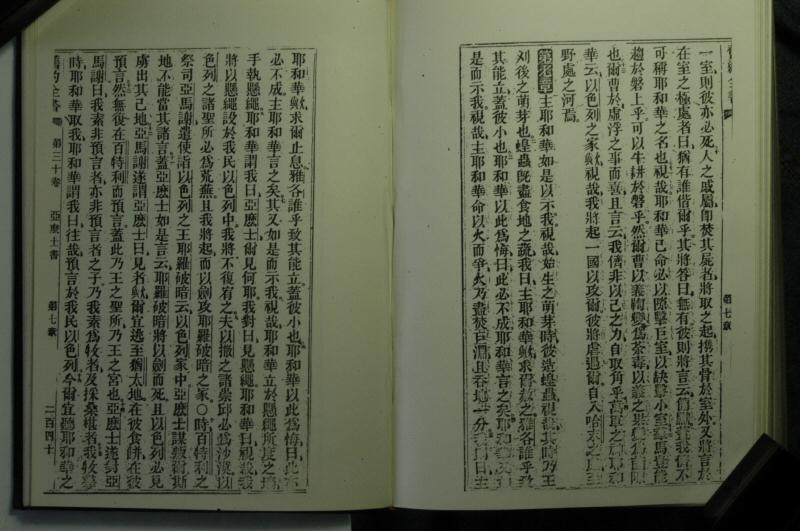 第七章
一室則彼亦必死人之戚屬卽焚其屍者將取之起攜其骨於室外又將言於
在室之極處者曰猶有誰偕爾乎其將答曰無有彼則將言云不
可稱耶和華之名也視哉耶和華已命必以隙擊巨室以缺擊小室馬豈能
趨於磐上乎可以牛耕於磐乎然爾曹以義鞫變爲茶毒以義之果變爲茵陳
也爾曹於虛浮之事而喜且言云我儕非以己之力自取角乎萬軍之神耶和
華云以色列之家歟視哉我將起一國以攻爾彼將虐遏爾自入哈末之處至
野處之河焉
第七章主耶和華如是以示我視哉始生之萌芽時彼造蝗蟲視哉其時乃王
刈後之萌芽也蝗蟲旣盡食地之蔬我曰主耶和華歟求爾赦之雅各誰乎致
其能立蓋彼小也耶和華以此爲悔曰此必不成耶和華言之矣耶和華又如
是而示我視哉主耶和華命以火而爭火乃盡焚巨淵且吞地一分我則曰主
耶和華歟求爾止息雅各誰乎致其能立蓋彼小也耶和華以此爲悔曰此亦
必不成主耶和華言之矣其又如是而示我視哉耶和華立於懸繩所度之墻
手執懸繩耶和華謂我曰亞麽士爾見何耶我對曰見懸繩耶和華曰視哉我
將以懸繩設於我民以色列中我將不復宥之夫以撒之諸崇邱必爲沙漠以
色列之諸聖所必爲荒蕪且我將起而以劍攻耶羅破暗之家○時百特利之
祭司亞馬謝遣使詣以色列之王耶羅破暗云以色列家中亞麽士謀叛爾斯
地不能當其諸言蓋亞麽士如是言云耶羅破暗將以劍而死且以色列必見
虜出其己地亞馬謝遂謂亞麽士曰見者歟爾宜逃至猶太地在彼食餅在彼
預言然無復在百特利而預言蓋此乃王之聖所乃王之宮也亞麽士遂對亞
馬謝曰我素非預言者亦非預言者之子乃我素爲牧者及採桑椹者我牧羣
時耶和華取我耶和華謂我曰往哉預言於我民以色列今爾宜聽耶和華之
舊約全書 第三十卷 亞麽士書 第七章 二百四十